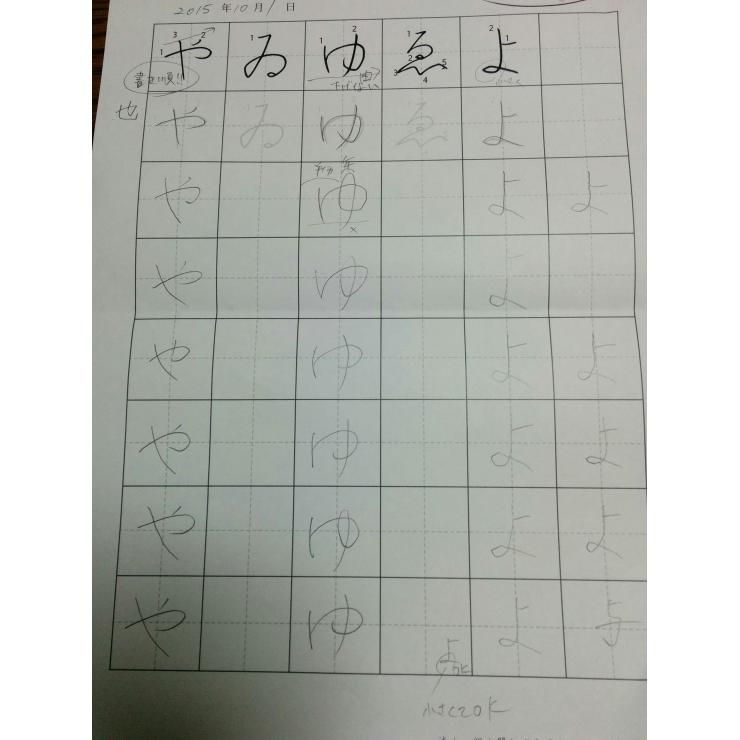 2015年10月1日
や ゐ ゆ ゑ よ
書き順!!
也 や ゐ ゆ ゑ よ
や ゆ よ よ
や ゆ よ
や ゆ よ よ
や ゆ よ よ
や ゆ よ よ
や ゆ よ 与